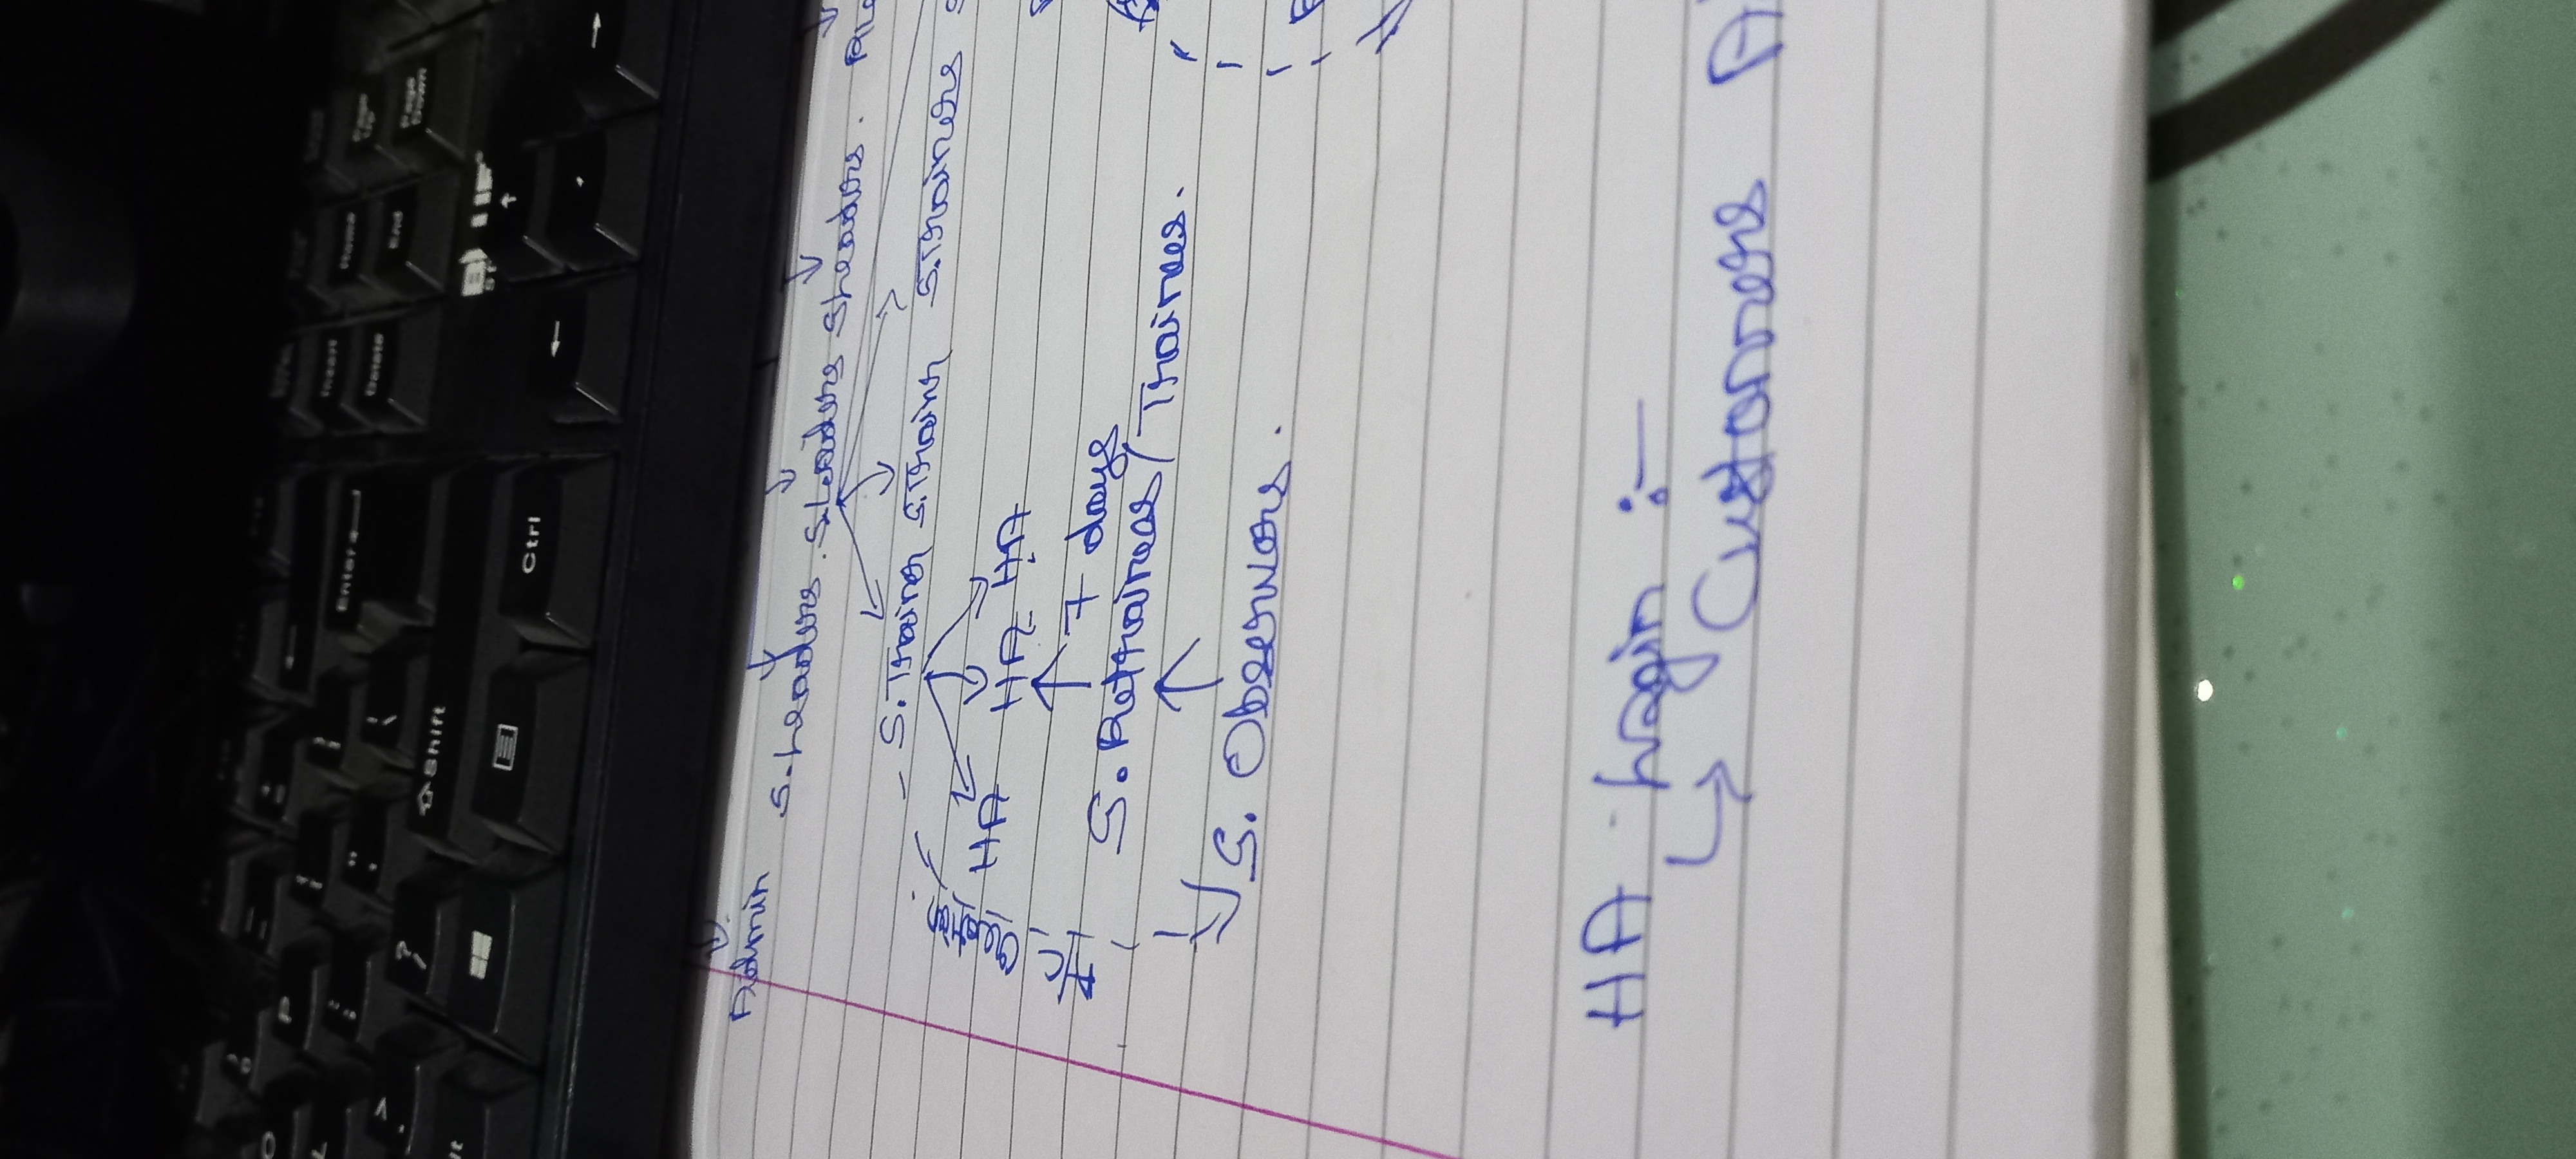 O P Enter Insert Home Page Up
Delete End Page Down
Shift
Ctrl
Admin S.Leaders. S.Leaders S.Leaders.
S.Trainer S.Trainr S.Trainers
HA HA HA
A/c Creation
7 days
S. Retrainees/Trainees.
S. Observors.
HA Login :-
Customers